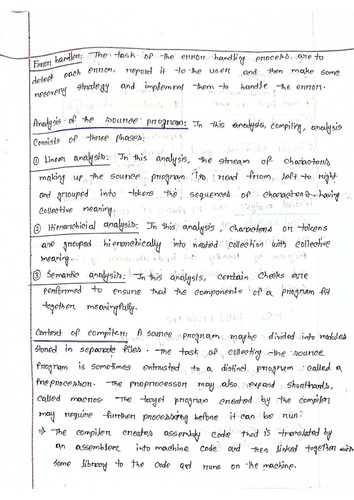 Error handler: The task of the error handling process are to
detect each error, report it to the user and then make some
recovery strategy and implement them to handle the error.
Analysis of the source program: In this analysis, compiling, analysis
consists of three phases:
① Linear analysis: In this analysis, the stream of characters
making up the source program is read from left to right
and grouped into tokens the sequences of characters having
collective meaning.
② Hierarchical analysis: In this analysis, characters or tokens
are grouped hierarchically into nested collection with collective
meaning.
③ Semantic analysis: In this analysis, certain checks are
performed to ensure that the components of a program fit
together meaningfully.
Context of compiler: A source program maybe divided into modules
stored in separate files. The task of collecting the source
program is sometimes entrusted to a distinct program called a
preprocessor. The preprocessor may also expand shorthands,
called macros. The target program created by the compiler
may require further processing before it can be run:
⇒ The compiler creates assembly code that is translated by
an assembler into machine code and then linked together with
some library to the code and runs on the machine.